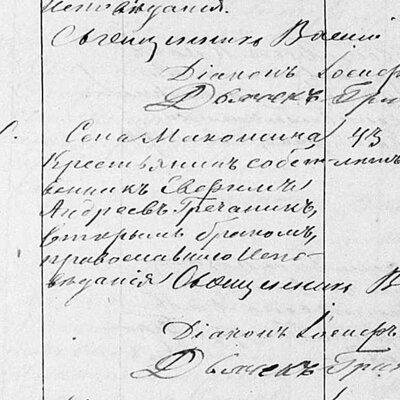 исповѣданія.
Священникъ Василій
Діаконъ Іосиф
Дьячекъ Гри
Села Макошина 43
Крестьянинъ собст- лѣтъ
венникъ Евфимъ
Андреевъ Гречаникъ,
вторымъ бракомъ,
православнаго Испо-
вѣданія Священникъ В
Діаконъ Іосиф
Дьячекъ Гри